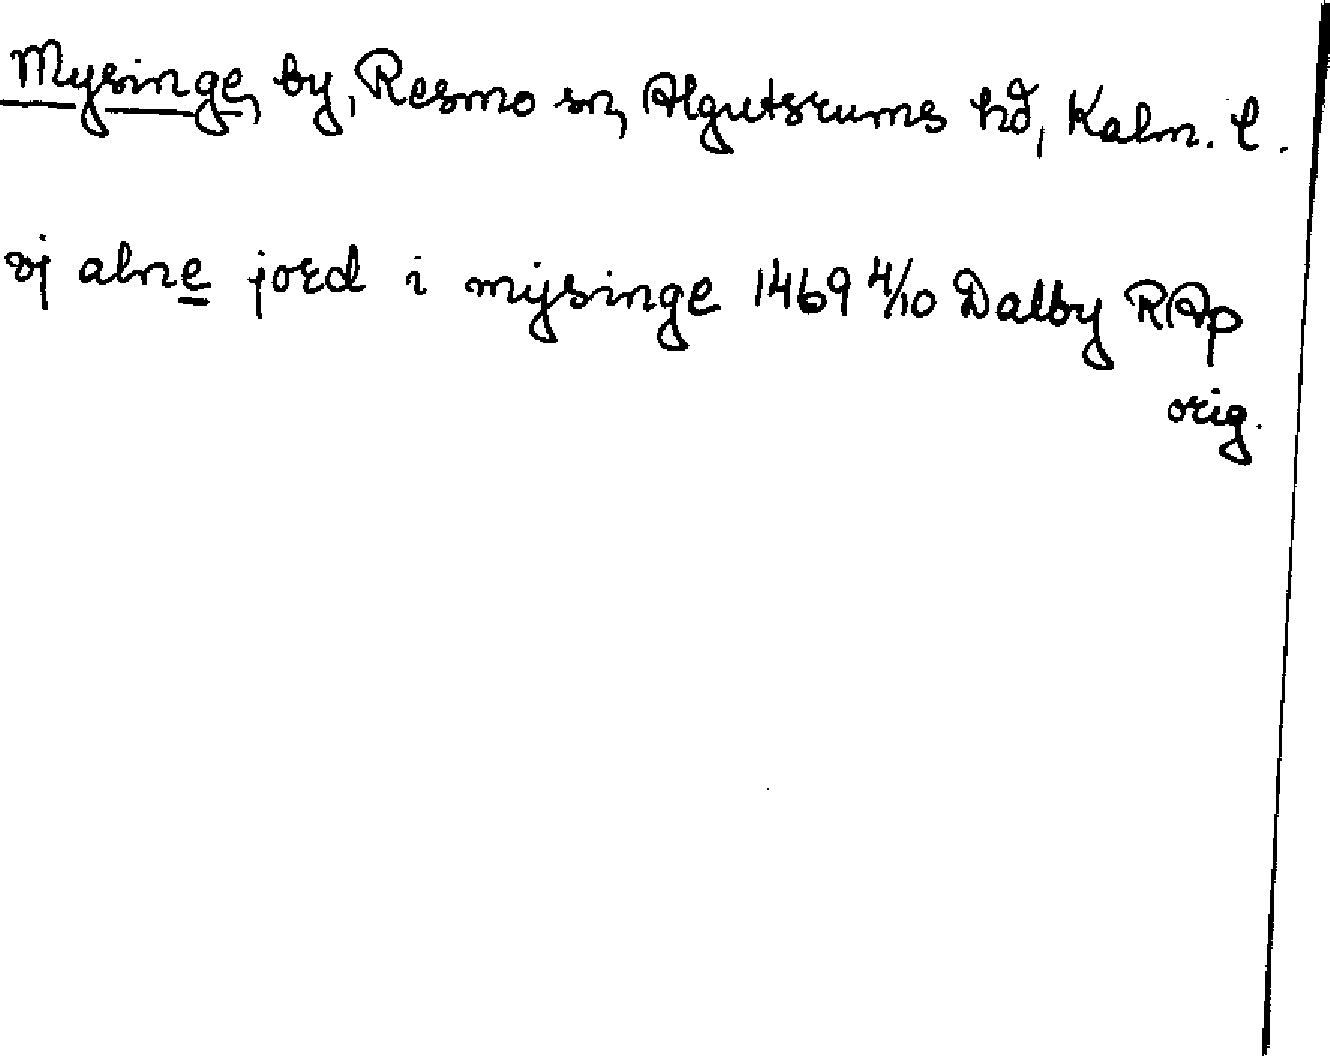 Mysinge, by, Resmo sn, Algutsrums hd, Kalm. l.
vj alne jord i mÿsinge 1469 4/10 Dalby RAp
orig.